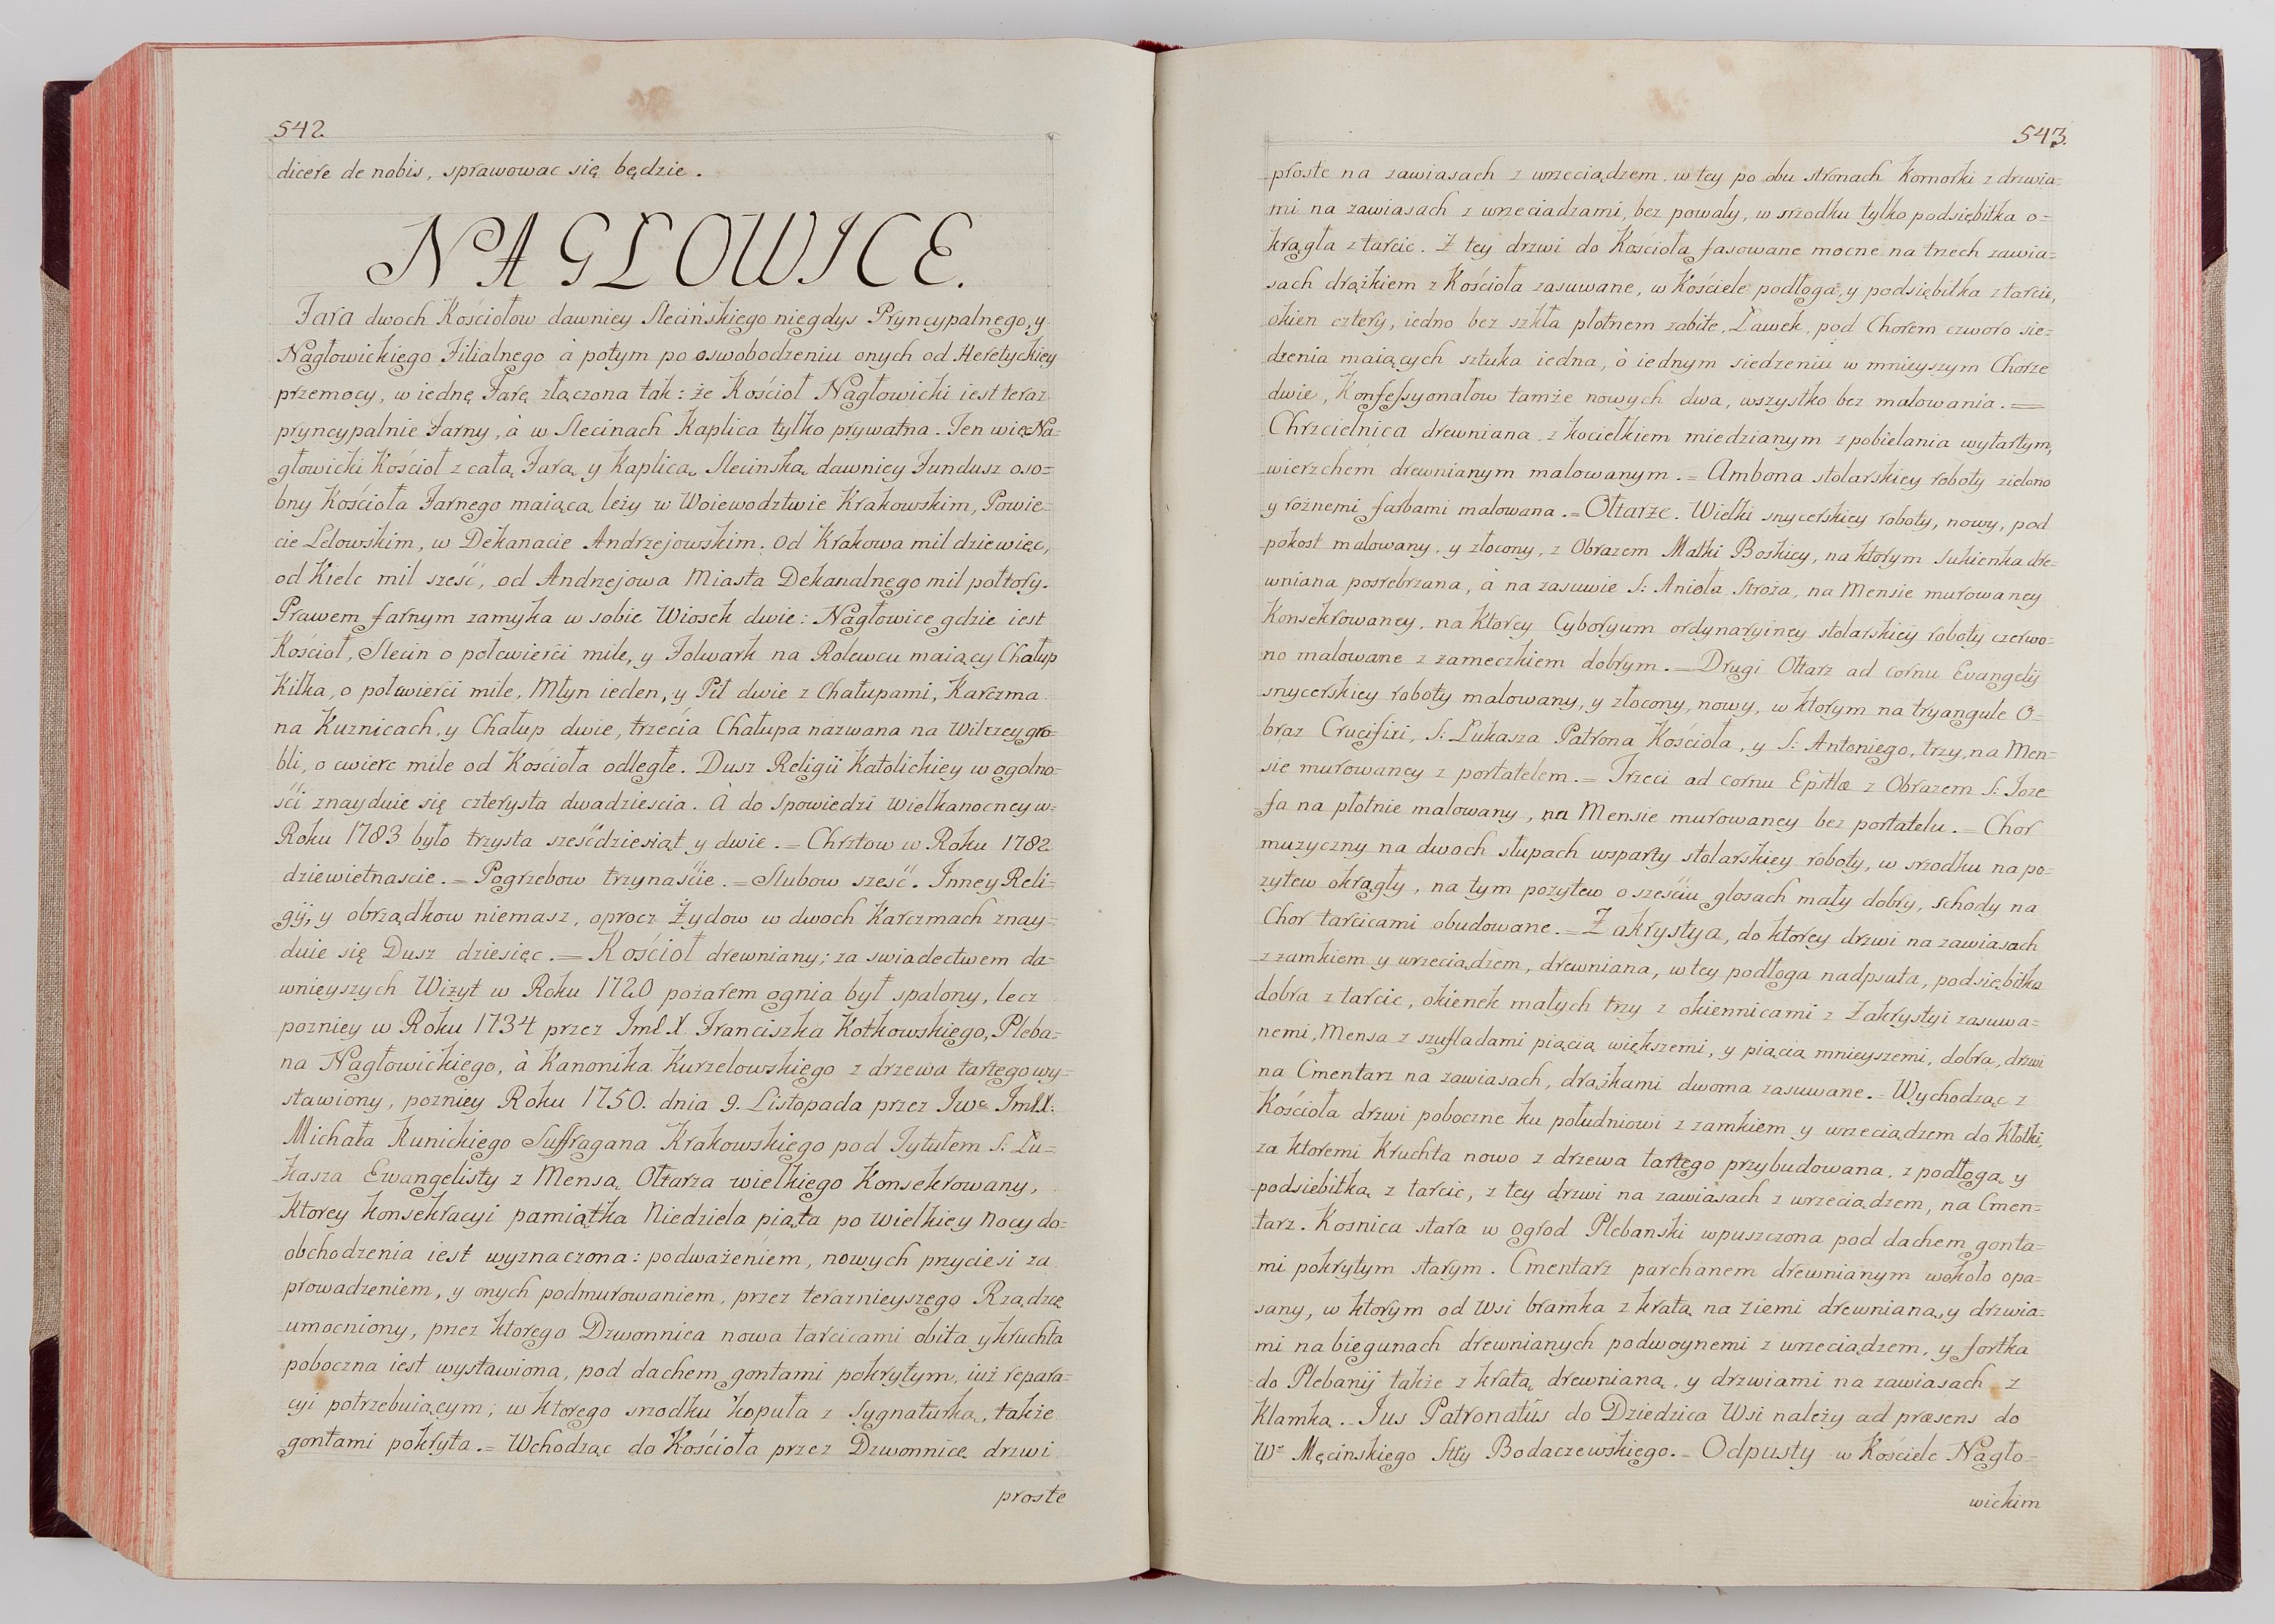 542
dicere de nobis, sprawowac się będzie.
NAGŁOWICE.
Fara dwoch Kościołow dawniey Slecińskiego niegdys Pryncypalnego, y
Nagłowickiego Filialnego à potym po oswobodzeniu onych od Heretyckiey
przemocy, w iednę Farę złączona tak: że Kościoł Nagłowicki iest teraz
pryncypalnie Farny, à w Slecinach Kaplica tylko prywatna. Ten więc Na=
głowicki Kościoł z całą Farą y Kaplicą Slecinską dawniey Fundusz oso=
bny Kościoła Farnego maiącą leży w Woiewodztwie Krakowskim, Powie=
cie Lelowskim, w Dekanacie Andrzejowskim. Od Krakowa mil dziewięc,
od Kielc mil sześć, od Andrzejowa Miasta Dekanalnego mil połtory.
Prawem farnym zamyka w sobie Wiosek dwie: Nagłowice gdzie iest
Kościoł, Slecin o połcwierci mile, y Folwark na Rolewcu maiący Chałup
kilka, o połcwierci mile, Młyn ieden, y Pił dwie z Chałupami, Karczma
na Kuznicach, y Chałup dwie, trzecia Chałupa nazwana na Wilczey gro=
bli, o cwierc mile od Kościoła odległe. Dusz Religii Katolickiey w ogolno=
ści znayduie się czterysta dwadziescia. A do Spowiedzi Wielkanocney w=
Roku 1783 było trzysta sześćdziesiąt y dwie. = Chrztow w Roku 1782
dziewietnascie. = Pogrzebow trzynaście. = Slubow sześć. Inney Reli=
gij, y obrządkow niemasz, oprocz Żydow w dwoch Karczmach znay=
duie się Dusz dziesięc. = Kościoł drewniany; za swiadectwem da=
wnieyszych Wizyt w Roku 1720 pożarem ognia był spalony, lecz
pozniey w Roku 1734 przez Jmć X. Franciszka Kotkowskiego, Pleba=
na Nagłowickiego, à Kanonika Kurzelowskiego z drzewa tartego wy=
stawiony, pozniey Roku 1750. dnia 9. Listopada przez JWc JmćX.
Michała Kunickiego Suffragana Krakowskiego pod Tytułem S. Łu=
kasza Ewangelisty z Mensą Ołtarza wielkiego Konsekrowany,
ktorey konsekracyi pamiątka Niedziela piąta po Wielkiey Nocy do=
obchodzenia iest wyznaczona: podważeniem, nowych przyciesi za
prowadzeniem, y onych podmurowaniem, przez teraznieyszego Rządzcę
umocniony, przez ktorego Dzwonnica nowa tarcicami obita y kruchta
poboczna iest wystawiona, pod dachem gontami pokrytym, iuż repara=
cyi potrzebuiącym; w ktorego srzodku kopuła z Sygnaturką, także
gontami pokryta. = Wchodząc do Kościoła przez Dzwonnicę drzwi
proste
543.
proste na zawiasach z wrzeciądzem, w tey po obu stronach Komorki z drzwia=
mi na zawiasach z wrzeciadzami, bez powały, w srzodku tylko podsiębitka o=
krągła z tarcic. Z tey drzwi do Kościoła fasowane mocne na trzech zawia=
sach drążkiem z Kościoła zasuwane, w Kościele podłoga, y podsiębitka z tarcic,
okien cztery, iedno bez szkła płotnem zabite, Ławek, pod Chorem czworo sie=
dzenia maiących sztuka iedna, ò iednym siedzeniu w mnieyszym Chorze
dwie, Konfessyonałow tamże nowych dwa, wszystko bez malowania. =
Chrzcielnica drewniana z kociełkiem miedzianym z pobielania wytartym,
wierzchem drewnianym malowanym. = Ambona stolarskiey roboty zielono
y rożnemi farbami malowana. = Ołtarze. Wielki snycerskiey roboty, nowy, pod
pokost malowany, y złocony, z Obrazem Matki Boskiey, na ktorym Sukienka dre=
wniana posrebrzana, à na zasuwie S: Anioła Stroża, na Mensie murowaney
Konsekrowaney, na ktorey Cyboryum ordynaryiney stolarskiey roboty czerwo=
no malowane z zameczkiem dobrym. = Drugi Ołtarz ad cornu Evangelij
snycerskiey roboty malowany, y złocony, nowy, w ktorym na tryangule O=
braz Crucifixi, S: Łukasza Patrona Kościoła, y S: Antoniego, trzy, na Men=
sie murowaney z portatelem. = Trzeci ad cornu Epistlæ z Obrazem S: Joze
fa na płotnie malowany, na Mensie murowaney bez portatelu. = Chor
muzyczny na dwoch słupach wsparty stolarskiey roboty, w srzodku na po=
zytew okrągły, na tym pozytew o sześciu głosach mały dobry, schody na
Chor tarcicami obudowane. = Zakrystya, do ktorey drzwi na zawiasach
z zamkiem y wrzeciądzem, drewniana, w tey podłoga nadpsuta, podsiębitka
dobra z tarcic, okienek małych trzy z okiennicami z Zakrystyi zasuwa=
nemi, Mensa z szufladami piącią większemi, y piącia mnieyszemi, dobra, drzwi
na Cmentarz na zawiasach, drążkami dwoma zasuwane. = Wychodząc z
Kościoła drzwi poboczne ku południowi z zamkiem y wrzeciądzem do kłotki,
za ktoremi Kruchta nowo z drzewa tartego przybudowana, z podłogą y
podsiebitką z tarcic, z tey drzwi na zawiasach z wrzeciądzem, na Cmen=
tarz. Kosnica stara w ogrod Plebanski wpuszczona pod dachem gonta=
mi pokrytym starym. Cmentarz parchanem drewnianym wokoło opa=
sany, w ktorym od Wsi bramka z kratą na ziemi drewnianą, y drzwia=
mi na biegunach drewnianych podwoynemi z wrzeciądzem, y fortka
do Plebanij także z kratą drewnianą, y drzwiami na zawiasach z
klamką. = Jus Patronatûs do Dziedzica Wsi należy ad præsens do
We Męcinskiego Stty Bodaczewskiego. = Odpusty w Kościele Nagło=
wickim